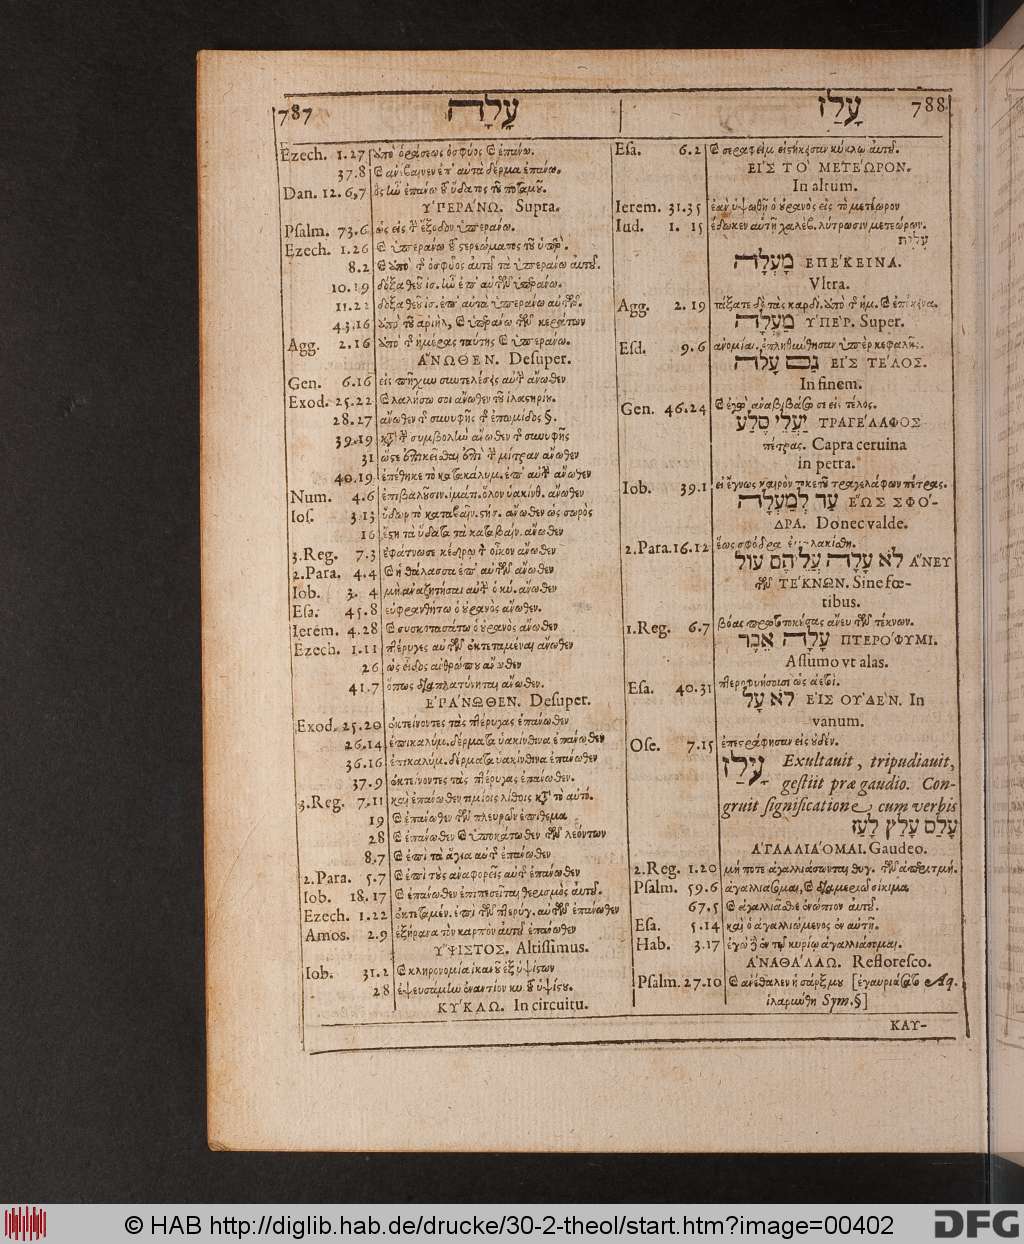 787 עָלָה
עָלַז 788
Ezech. 1.27 ὑπὸ ὁράσεως ὀσφύος καὶ ἐπάνω.
37.8 καὶ ἀνέβαινεν ἐπ' αὐτὰ δέρμα ἐπάνω.
Dan. 12.6,7 ὃς ἦν ἐπάνω τοῦ ὕδατος τοῦ ποταμοῦ.
ὙΠΕΡΆΝΩ. Supra.
Psalm. 73.6 ὡς εἰς τὴν ἔξοδον ὑπεράνω.
Ezech. 1.26 καὶ ὑπεράνω τοῦ στερεώματος τοῦ ὑπὲρ.
8.2 καὶ ἀπὸ τῆς ὀσφύος αὐτοῦ τὰ ὑπεράνω αὐτοῦ.
10.19 δόξα θεοῦ ἰσ. ἦν ἐπ' αὐτῶν ὑπεράνω.
11.22 δόξα θεοῦ ἰσ. ἐπ' αὐτὰ ὑπεράνω αὐτῶν.
43.16 ἀπὸ τοῦ ἀριὴλ, καὶ ὑπεράνω τῶν κεράτων
Agg. 2.16 ἀπὸ τῆς ἡμέρας ταύτης καὶ ὑπεράνω.
ἌΝΩΘΕΝ. Desuper.
Gen. 6.16 εἰς πῆχυν συντελέσεις αὐτὴν ἄνωθεν
Exod. 25.22 καὶ λαλήσω σοι ἄνωθεν τοῦ ἱλαστηρίου.
28.27 ἄνωθεν τῆς συνυφῆς τῆς ἐπωμίδος §.
39.19 κατὰ τὴν συμβολὴν ἄνωθεν τῆς συνυφῆς
31 ὥστε ἐπικεῖσθαι ἐπὶ τὴν μίτραν ἄνωθεν
40.19 ἐπέθηκε τὸ κατακάλυμ. ἐπ' αὐτὴν ἄνωθεν
Num. 4.6 ἐπιβαλοῦσιν ἱμάτ. ὅλον ὑακίνθ. ἄνωθεν
Ios. 3.13 ὕδωρ τὸ καταβαῖν. στήσ. ἄνωθεν ὡς σωρὸς
16 ἔστη τὰ ὕδατα τὰ καταβαίν. ἄνωθεν
3.Reg. 7.3 ἐφάτνωσε κέδρῳ τὸν οἶκον ἄνωθεν
2.Para. 4.4 καὶ ἡ θάλασσα ἐπ' αὐτῶν ἄνωθεν
Iob. 3. 4 μὴ ἀναζητήσαι αὐτὴν ὁ κύ. ἄνωθεν
Esa. 45.8 εὐφρανθήτω ὁ οὐρανὸς ἄνωθεν.
Ierem. 4.28 καὶ συσκοτασάτω ὁ οὐρανὸς ἄνωθεν
Ezech. 1.11 πτέρυγες αὐτῶν ἐκτεταμέναι ἄνωθεν
26 ὡς εἶδος ἀνθρώπου ἄνωθεν
41.7 ὅπως διαπλατύνηται ἄνωθεν.
ἘΠΆΝΩΘΕΝ. Desuper.
Exod. 25.20 ἐκτείνοντες τὰς πτέρυγας ἐπάνωθεν
26.14 ἐπικαλύμ. δέρματα ὑακίνθινα ἐπάνωθεν
36.16 ἐπικαλύμ. δέρματα ὑακίνθινα ἐπάνωθεν
37.9 ἐκτείνοντες τὰς πτέρυγας ἐπάνωθεν.
3.Reg. 7.11 καὶ ἐπάνωθεν τιμίοις λίθοις κατὰ τὸ αὐτό.
19 καὶ ἐπάνωθεν τῶν πλευρῶν ἐπίθεμα
28 καὶ ἐπάνωθεν καὶ ὑποκάτωθεν τῶν λεόντων
8.7 καὶ ἐπὶ τὰ ἅγια αὐτῆς ἐπάνωθεν
2.Para. 5.7 καὶ ἐπὶ τοὺς ἀναφορεῖς αὐτῆς ἐπάνωθεν
Iob. 18.17 καὶ ἐπάνωθεν ἐπιπεσεῖται θερισμὸς αὐτοῦ.
Ezech. 1.22 ἐκτεταμέν. ἐπὶ τῶν πτερύγ. αὐτῶν ἐπάνωθεν
Amos. 2.9 ἐξήρανα τὸν καρπὸν αὐτοῦ ἐπάνωθεν
ὝΨΙΣΤΟΣ. Altissimus.
Iob. 31.2 καὶ κληρονομία ἱκανοῦ ἐξ ὑψίστων
28 ἐψευσάμην ἐναντίον κυ. τοῦ ὑψίστου.
ΚΎΚΛΩ. In circuitu.
Esa. 6.2 καὶ σεραφεὶμ εἱστήκεισαν κύκλῳ αὐτοῦ.
ΕΙ᾿Σ ΤΟ` ΜΕΤΈΩΡΟΝ.
In altum.
Ierem. 31.35 ἐὰν ὑψωθῇ ὁ οὐρανὸς εἰς τὸ μετέωρον
Iud. 1. 15 ἔδωκεν αὐτῇ χαλὲβ, λύτρωσιν μετεώρων.
עִלִּית
מַעְלָה ΕΠΈΚΕΙΝΑ.
Vltra.
Agg. 2.19 τάξατε δὴ τὰς καρδί. ἀπὸ τῆς ἡμ. καὶ ἐπέκεινα.
מַעְלָה ὙΠΈΡ. Super.
Esd. 9.6 ἀνομίαι. ἐπληθύνθησαν ὑπὲρ κεφαλῆς.
גַם עָלֹה ΕΙ᾿Σ ΤΈΛΟΣ.
In finem.
Gen. 46.24 καὶ ἐγὼ ἀναβιβάσω σε εἰς τέλος.
יַעֲלֵי סֶלַע ΤΡΑΓΈΛΑΦΟΣ
πέτρας. Capra ceruina
in petra.
Iob. 39.1 εἰ ἔγνως καιρὸν τοκετοῦ τραγελάφων πέτρας.
עַד לְמַעְלָה ἝΩΣ ΣΦΌ-
ΔΡΑ. Donec valde.
2.Para. 16.12 ἕως σφόδρα ἐμαλακίσθη.
לֹא עָלָה עֲלֵיהֶם עוֹל ἌΝΕΥ
τῶν ΤΕΚΝΩΝ. Sine fœ-
tibus.
1.Reg. 6.7 βόας πρωτοτοκούσας ἄνευ τῶν τέκνων.
עָלָה אֵבֶר ΠΤΕΡΟΦΥΜΙ.
Assumo vt alas.
Esa. 40.31 πτεροφυήσουσι ὡς ἀετοὶ.
לֹא עָל ΕΙΣ ΟΥ᾿ΔΈΝ. In
vanum.
Ose. 7.15 ἐπεστράφησαν εἰς οὐδέν.
עָלַז Exultauit, tripudiauit,
gestiit præ gaudio. Con-
gruit significatione cum verbis
עָלַס עָלַץ לָעַז
ἈΓΑΛΛΙΆΟΜΑΙ. Gaudeo.
2.Reg. 1.20 μή ποτε ἀγαλλιάσωνται θυγ. τῶν ἀπεριτμή.
Psalm. 59.6 ἀγαλλιάσομαι, καὶ διαμεριῶ σίκιμα,
67.5 καὶ ἀγαλλιᾶσθε ἐνώπιον αὐτοῦ.
Esa. 5.14 καὶ ὁ ἀγαλλιώμενος ἐν αὐτῇ.
Hab. 3.17 ἐγὼ δὲ ἐν τῷ κυρίῳ ἀγαλλιάσομαι.
ἈΝΑΘΆΛΛΩ. Refloresco.
Psalm. 27.10 καὶ ἀνέθαλεν ἡ σάρξ μου [ἐγαυριάσατο Aq.
ἱλαρώθη Sym. §]
ΚΑΥ-
© HAB http://diglib.hab.de/drucke/30-2-theol/start.htm?image=00402
DFG